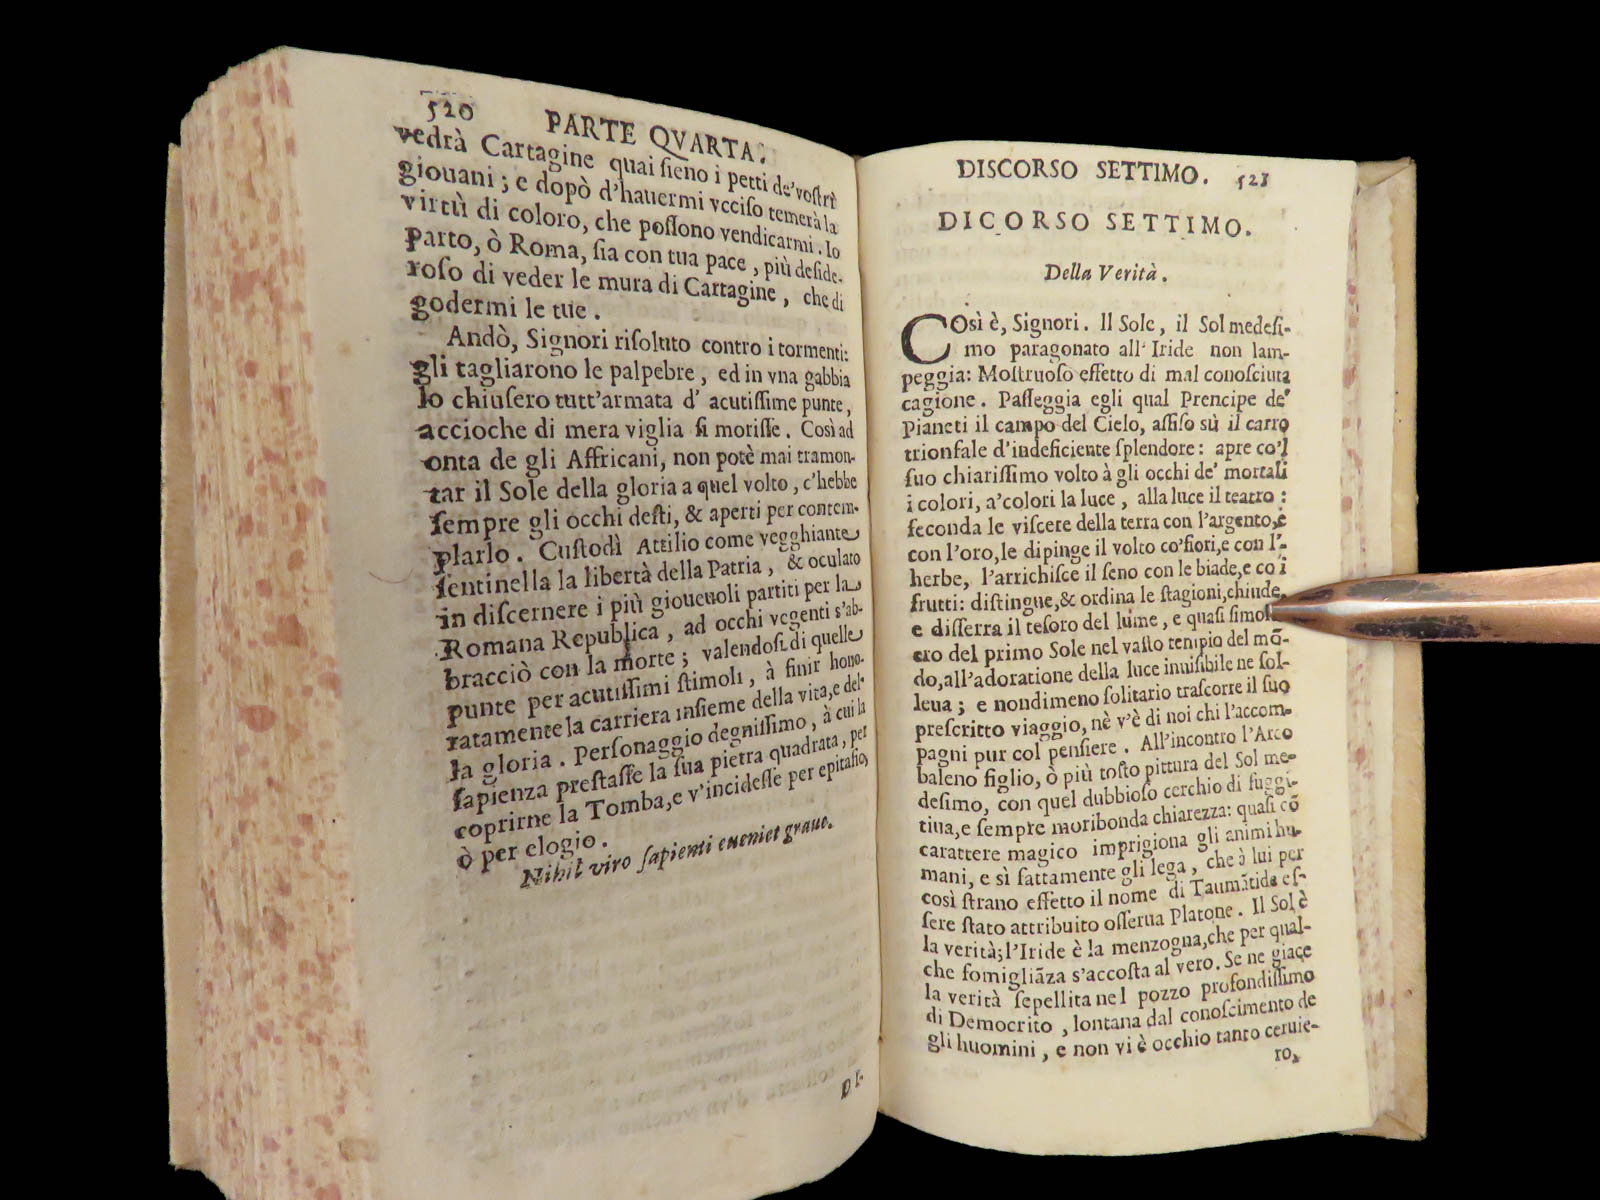 520 PARTE QVARTA.
vedrà Cartagine quai ſieno i petti de'voſtri
giouani; e dopò d'hauermi vcciſo temerà la
virtù di coloro, che poſſono vendicarmi. Io
parto, ò Roma, ſia con tua pace, più deſide-
roſo di veder le mura di Cartagine, che di
godermi le tue.
Andò, Signori riſoluto contro i tormenti:
gli tagliarono le palpebre, ed in vna gabbia
lo chiuſero tutt'armata d' acutiſſime punte,
accioche di mera viglia ſi moriſſe. Così ad
onta de gli Affricani, non potè mai tramon-
tar il Sole della gloria a quel volto, c'hebbe
ſempre gli occhi deſti, & aperti per contem-
plarlo. Cuſtodì Attilio come vegghiante
ſentinella la libertà della Patria, & oculato
in diſcernere i più gioueuoli partiti per la
Romana Republica, ad occhi vegenti s'ab-
bracciò con la morte; valendoſi di quelle
punte per acutiſſimi ſtimoli, à finir hono-
ratamente la carriera inſieme della vita, e del-
la gloria. Perſonaggio degniſſimo, à cui la
ſapienza preſtaſſe la ſua pietra quadrata, per
coprirne la Tomba, e v'incideſſe per epitafio,
ò per elogio.
Nihil viro ſapienti eueniet graue.
DI-
DISCORSO SETTIMO. 521
DICORSO SETTIMO.
Della Verità.
COsì è, Signori. Il Sole, il Sol medeſi-
mo paragonato all'Iride non lam-
peggia: Moſtruoſo effetto di mal conoſciuta
cagione. Paſſeggia egli qual Prencipe de'
Pianeti il campo del Cielo, aſſiſo sù il carro
trionfale d'indeficiente ſplendore: apre co'l
ſuo chiariſſimo volto à gli occhi de' mortali
i colori, a'colori la luce, alla luce il teatro:
feconda le viſcere della terra con l'argento, e
con l'oro, le dipinge il volto co'fiori, e con l'
herbe, l'arrichiſce il ſeno con le biade, e co i
frutti: diſtingue, & ordina le ſtagioni, chiude,
e diſſerra il teſoro del lume, e quaſi ſimol
cro del primo Sole nel vaſto tempio del mō-
do, all'adoratione della luce inuiſibile ne ſol-
leua; e nondimeno ſolitario traſcorre il ſuo
preſcritto viaggio, nè v'è di noi chi l'accom-
pagni pur col penſiere. All'incontro l'Arco
baleno figlio, ò più toſto pittura del Sol me-
deſimo, con quel dubbioſo cerchio di fuggi-
tiua, e ſempre moribonda chiarezza: quaſi cō
carattere magico imprigiona gli animi hu-
mani, e sì fattamente gli lega, che à lui per
così ſtrano effetto il nome di Taumātide eſ-
ſere ſtato attribuito oſſerua Platone. Il Sol è
la verità; l'Iride è la menzogna, che per qual-
che ſomigliāza s'accoſta al vero. Se ne giace
la verità ſepellita nel pozzo profondiſſimo
di Democrito, lontana dal conoſcimento de
gli huomini, e non vi è occhio tanto ceruie-
ro,